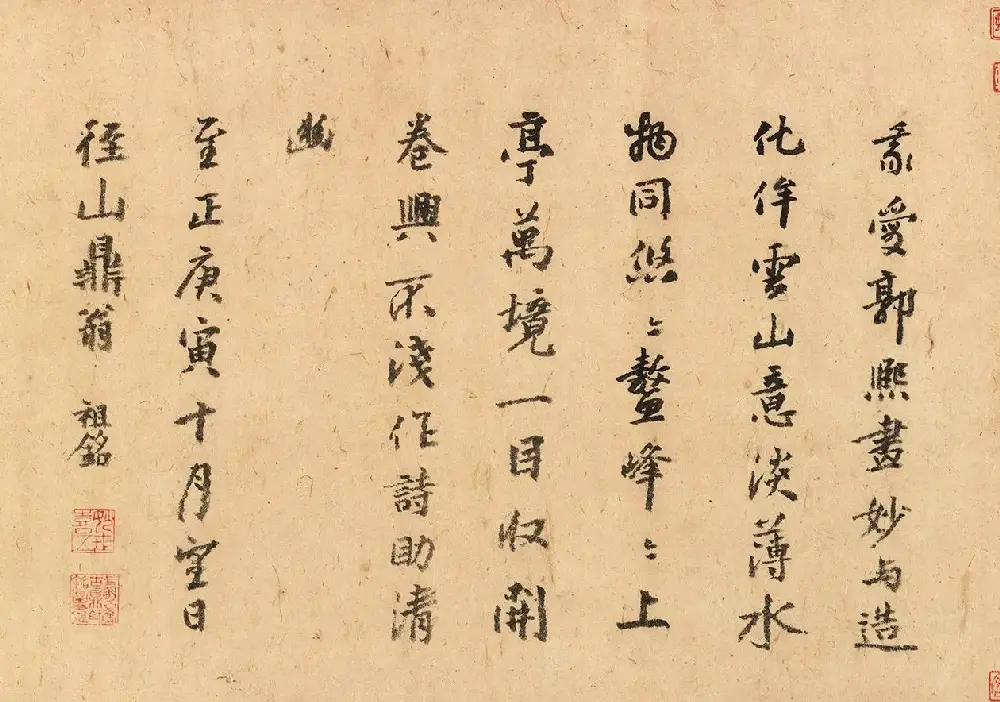 我愛郭熙畫妙与造
化侔雲山意淡薄水
物同悠〻鼇峰〻上
亭萬境一目収開
卷興不淺作詩助清
幽
至正庚寅十月望日
徑山鼎翁 祖銘